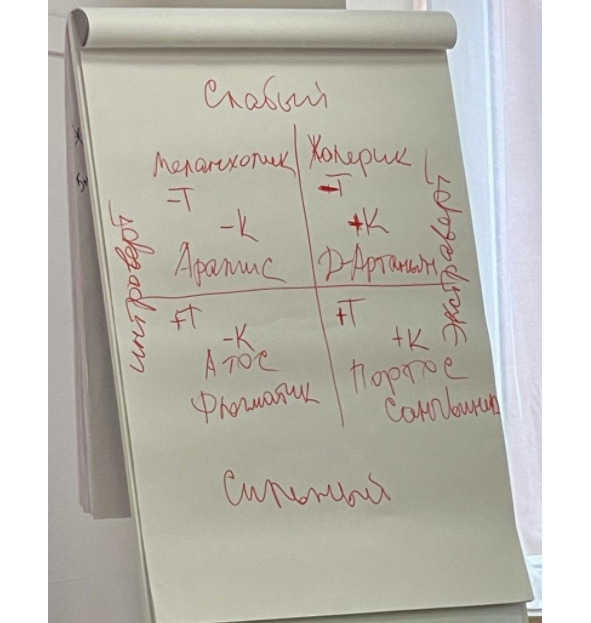 Слабый
Меланхолик
Холерик
-Т
-Т
-К
+К
Арамис
Д-Артаньян
интроверт
экстраверт
+Т
+Т
-К
+К
Атос
Портос
Флегматик
Сангвиник
Сильный